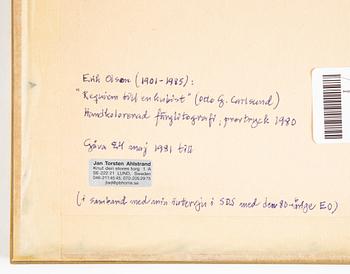 Erik Olson (1901-1985):
"Requiem till en kubist" (Otto G. Carlsund)
Handkolorerad färglitografi, provtryck 1980
Gåva 24 maj 1981 till
Jan Torsten Ahlstrand
Knut den stores torg 1 A
SE-222 21 LUND, Sweden
(i samband med min intervju i SDS med den 80-årige EO)